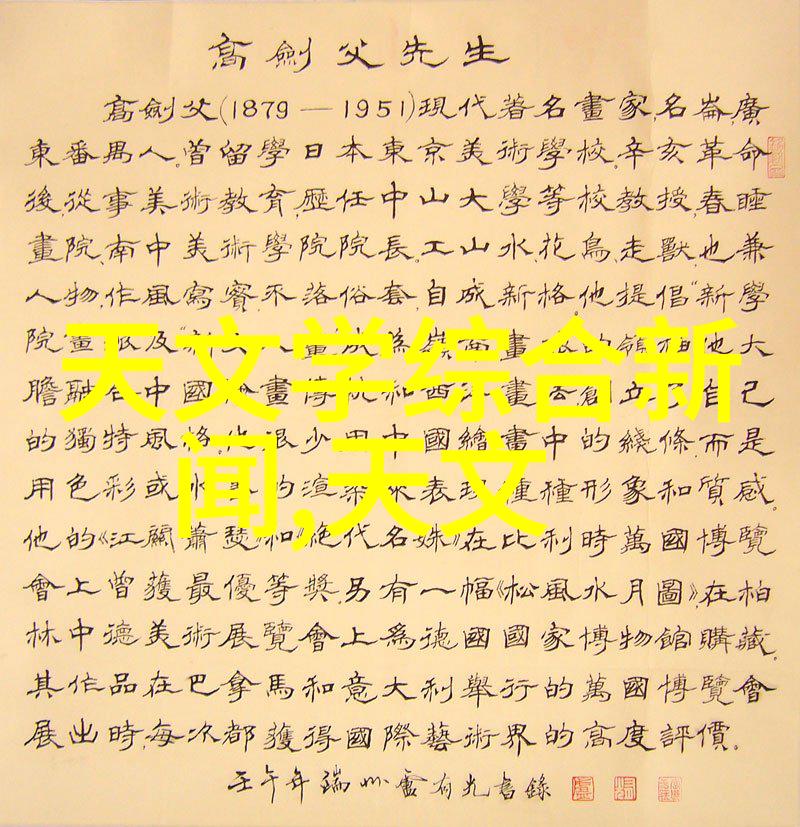 高劍父先生
高劍父(1879—1951)現代著名畫家,名崙,廣
東番禺人。曾留學日本東京美術學校,辛亥革命
後,從事美術教育,歷任中山大學等校教授,春睡
畫院,南中美術學院院長。工山水、花鳥、走獸,也兼
人物,作風寫實,不落俗套,自成新格。他提倡“新學
院畫派及“新 人畫成為嶺 畫派的領袖他大
膽融合中國 畫傳統和西 畫 創立了自己
的獨特風格。他很少用中國繪畫中的綫條,而是
用色彩或水 的渲染來表現種種形象和質感。
他的《江關蕭瑟》和《絕代名姝》在比利時萬國博覽
會上曾獲最優等獎,另有一幅《松風水月圖》,在柏
林中德美術展覽會上爲德國國家博物館購藏。
其作品在巴拿馬和意大利舉行的萬國博覽會
展出時,每次都獲得國際藝術界的高度評價。
壬午年端州盧有光書錄
天文学综合新
闻,天文